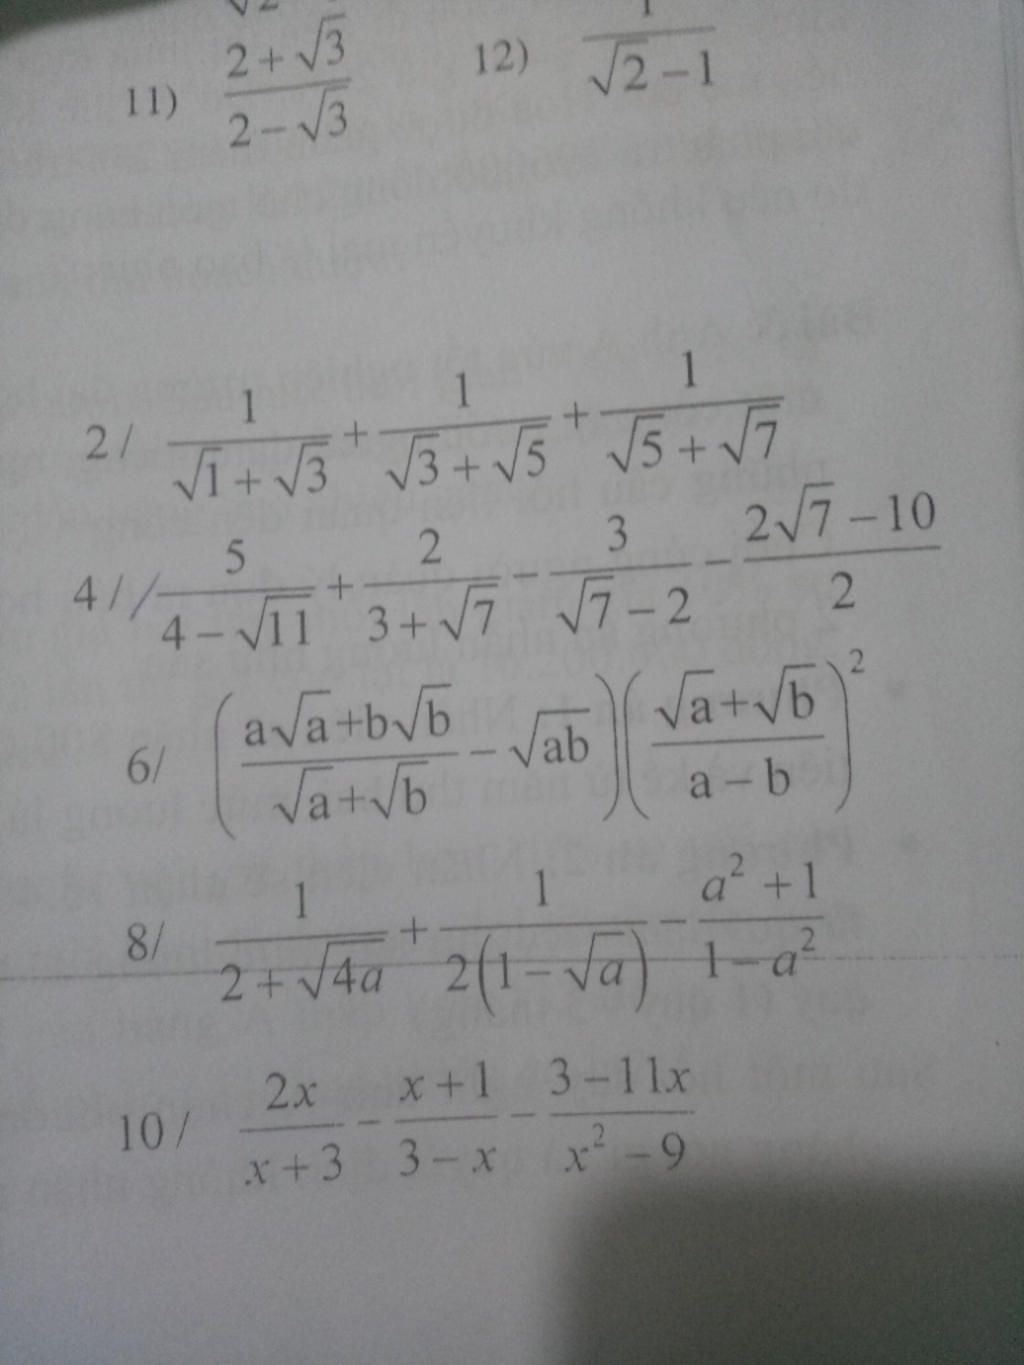 11) \frac{2+\sqrt{3}}{2-\sqrt{3}} 12) \frac{1}{\sqrt{2}-1}
2/ \frac{1}{\sqrt{1}+\sqrt{3}}+\frac{1}{\sqrt{3}+\sqrt{5}}+\frac{1}{\sqrt{5}+\sqrt{7}}
4// \frac{5}{4-\sqrt{11}}+\frac{2}{3+\sqrt{7}}-\frac{3}{\sqrt{7}-2}-\frac{2\sqrt{7}-10}{2}
6/ \left(\frac{a\sqrt{a}+b\sqrt{b}}{\sqrt{a}+\sqrt{b}}-\sqrt{ab}\right)\left(\frac{\sqrt{a}+\sqrt{b}}{a-b}\right)^2
8/ \frac{1}{2+\sqrt{4a}}+\frac{1}{2(1-\sqrt{a})}-\frac{a^2+1}{1-a^2}
10/ \frac{2x}{x+3}-\frac{x+1}{3-x}-\frac{3-11x}{x^2-9}